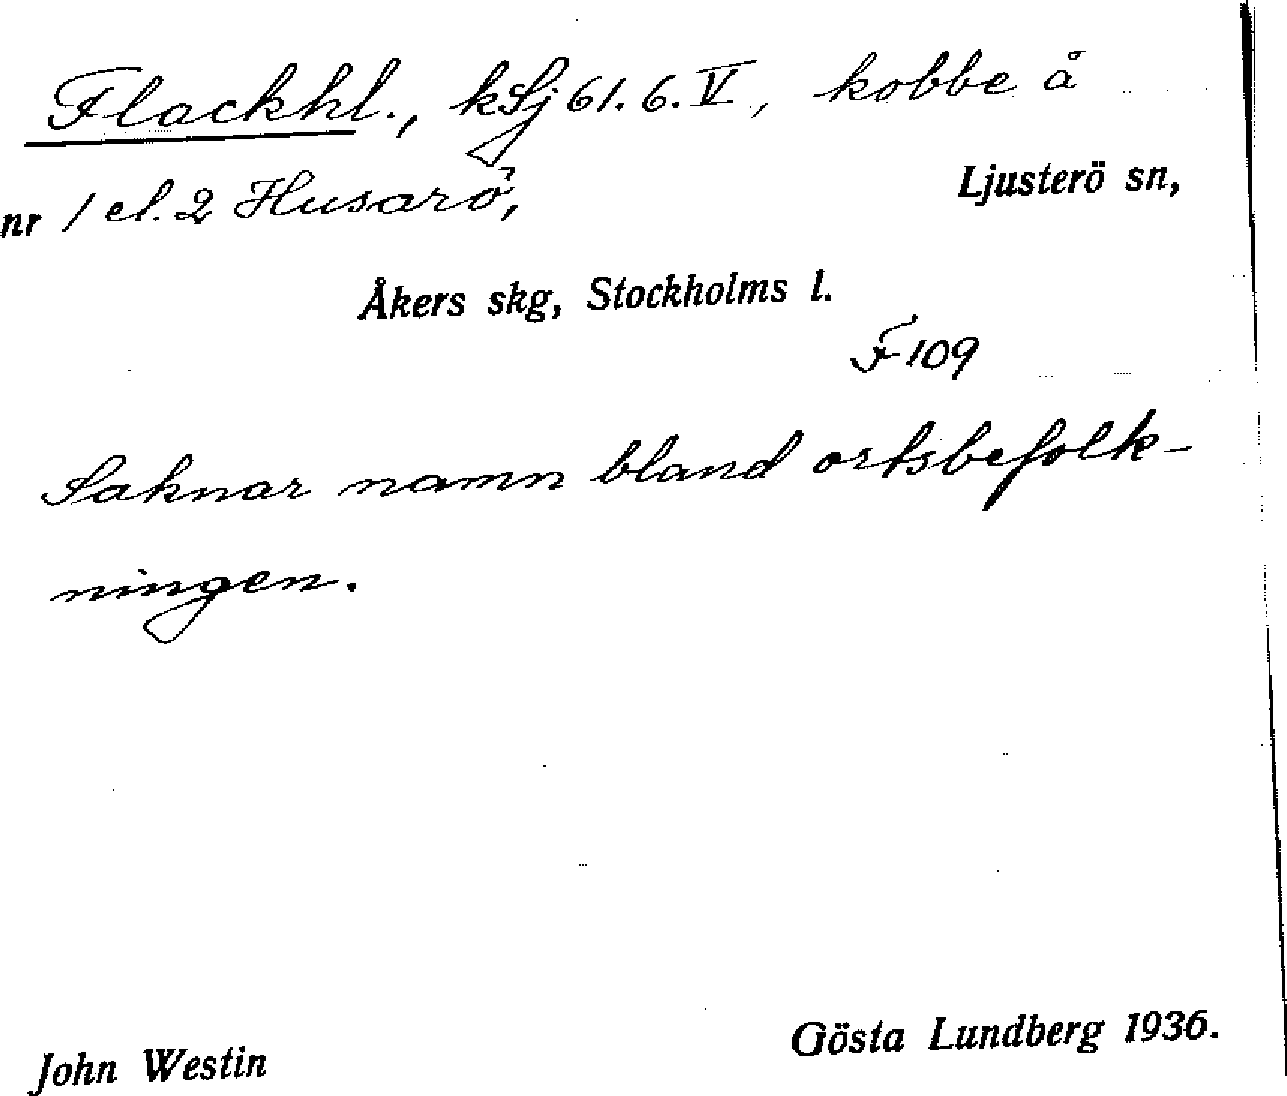 Flackhl., kSj 61. 6. V, kobbe å
nr 1 el. 2 Husarö, Ljusterö sn,
Åkers skg, Stockholms l.
F 109
Saknar namn bland ortsbefolk-
ningen.
John Westin Gösta Lundberg 1936.